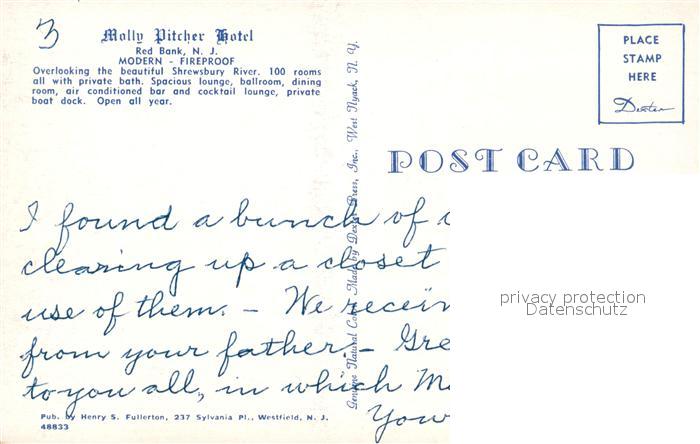 3
Molly Pitcher Hotel
Red Bank, N. J.
MODERN - FIREPROOF
Overlooking the beautiful Shrewsbury River. 100 rooms
all with private bath. Spacious lounge, ballroom, dining
room, air conditioned bar and cocktail lounge, private
boat dock. Open all year.
Genuine Natural Color Made by Dexter Press, Inc., West Nyack, N. Y.
PLACE
STAMP
HERE
Dexter
POST CARD
I found a bunch of
clearing up a closet
use of them. - We
from your father. -
to you all, in which
privacy protection
Datenschutz
Pub. by Henry S. Fullerton, 237 Sylvania Pl., Westfield, N. J.
48833